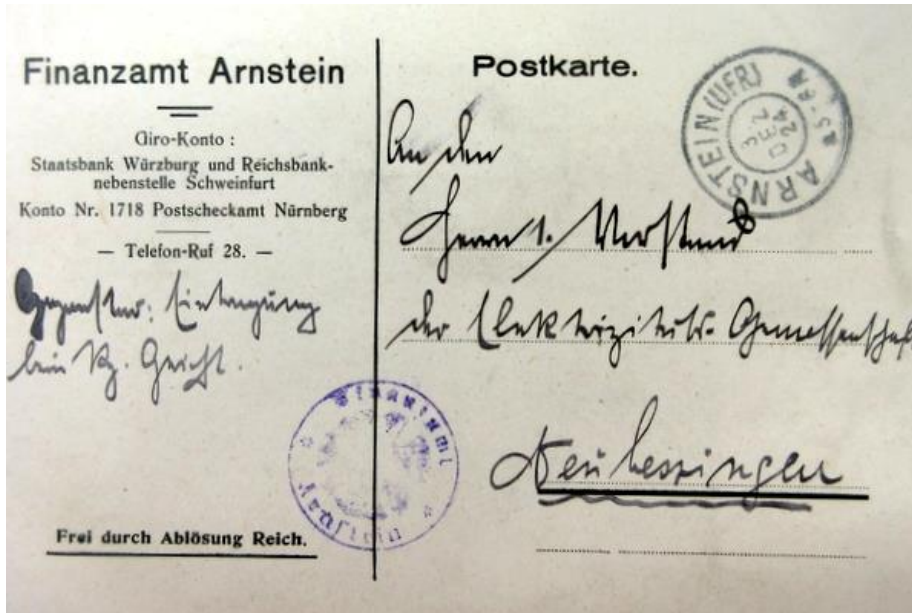 Finanzamt Arnstein
Giro-Konto :
Staatsbank Würzburg und Reichsbank-
nebenstelle Schweinfurt
Konto Nr. 1718 Postscheckamt Nürnberg
— Telefon-Ruf 28. —
Gegenstand: Eintragung
beim Rg. Gericht.
Frei durch Ablösung Reich.
Finanzamt
Arnstein
Postkarte.
ARNSTEIN (UFR)
3
DEZ
24
An den
Herrn 1. Vorstand
der Elektrizitäts-Genossenschaft
Neubessingen